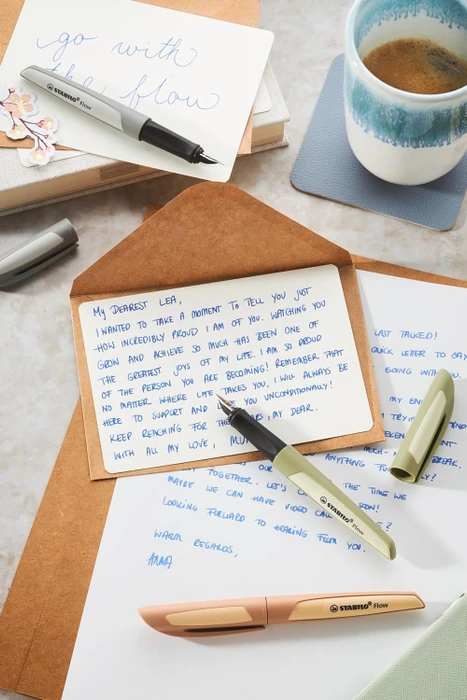 go with
the flow
STABILO Flow
MY DEAREST LEA,
I WANTED TO TAKE A MOMENT TO TELL YOU JUST
HOW INCREDIBLY PROUD I AM OF YOU. WATCHING YOU
GROW AND ACHIEVE SO MUCH HAS BEEN ONE OF
THE GREATEST JOYS OF MY LIFE. I AM SO PROUD
OF THE PERSON YOU ARE BECOMING! REMEMBER THAT
NO MATTER WHERE LIFE TAKES YOU, I WILL ALWAYS BE
HERE TO SUPPORT AND YOU UNCONDITIONALLY!
KEEP REACHING FOR THE MY DEAR.
WITH ALL MY LOVE,
LAST TALKED!
QUICK LETTER TO SAY
GOING WITH
MY
BREAK.
ANYTHING
TOGETHER. LET'S THE TIME WE
MAYBE WE CAN HAVE VIDEO SOON!
LOOKING FORWARD TO HEARING FROM YOU.
WARM REGARDS,
ANNA
STABILO Flow
STABILO Flow